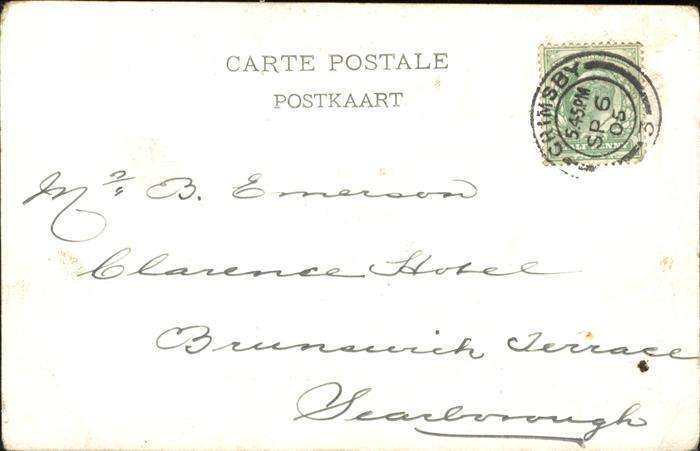 CARTE POSTALE
POSTKAART
GRIMSBY
5.45PM
SP 6
05
3
HALFPENNY
Mrs B. Emerson
Clarence Hotel
Brunswick Terrace
Scarborough